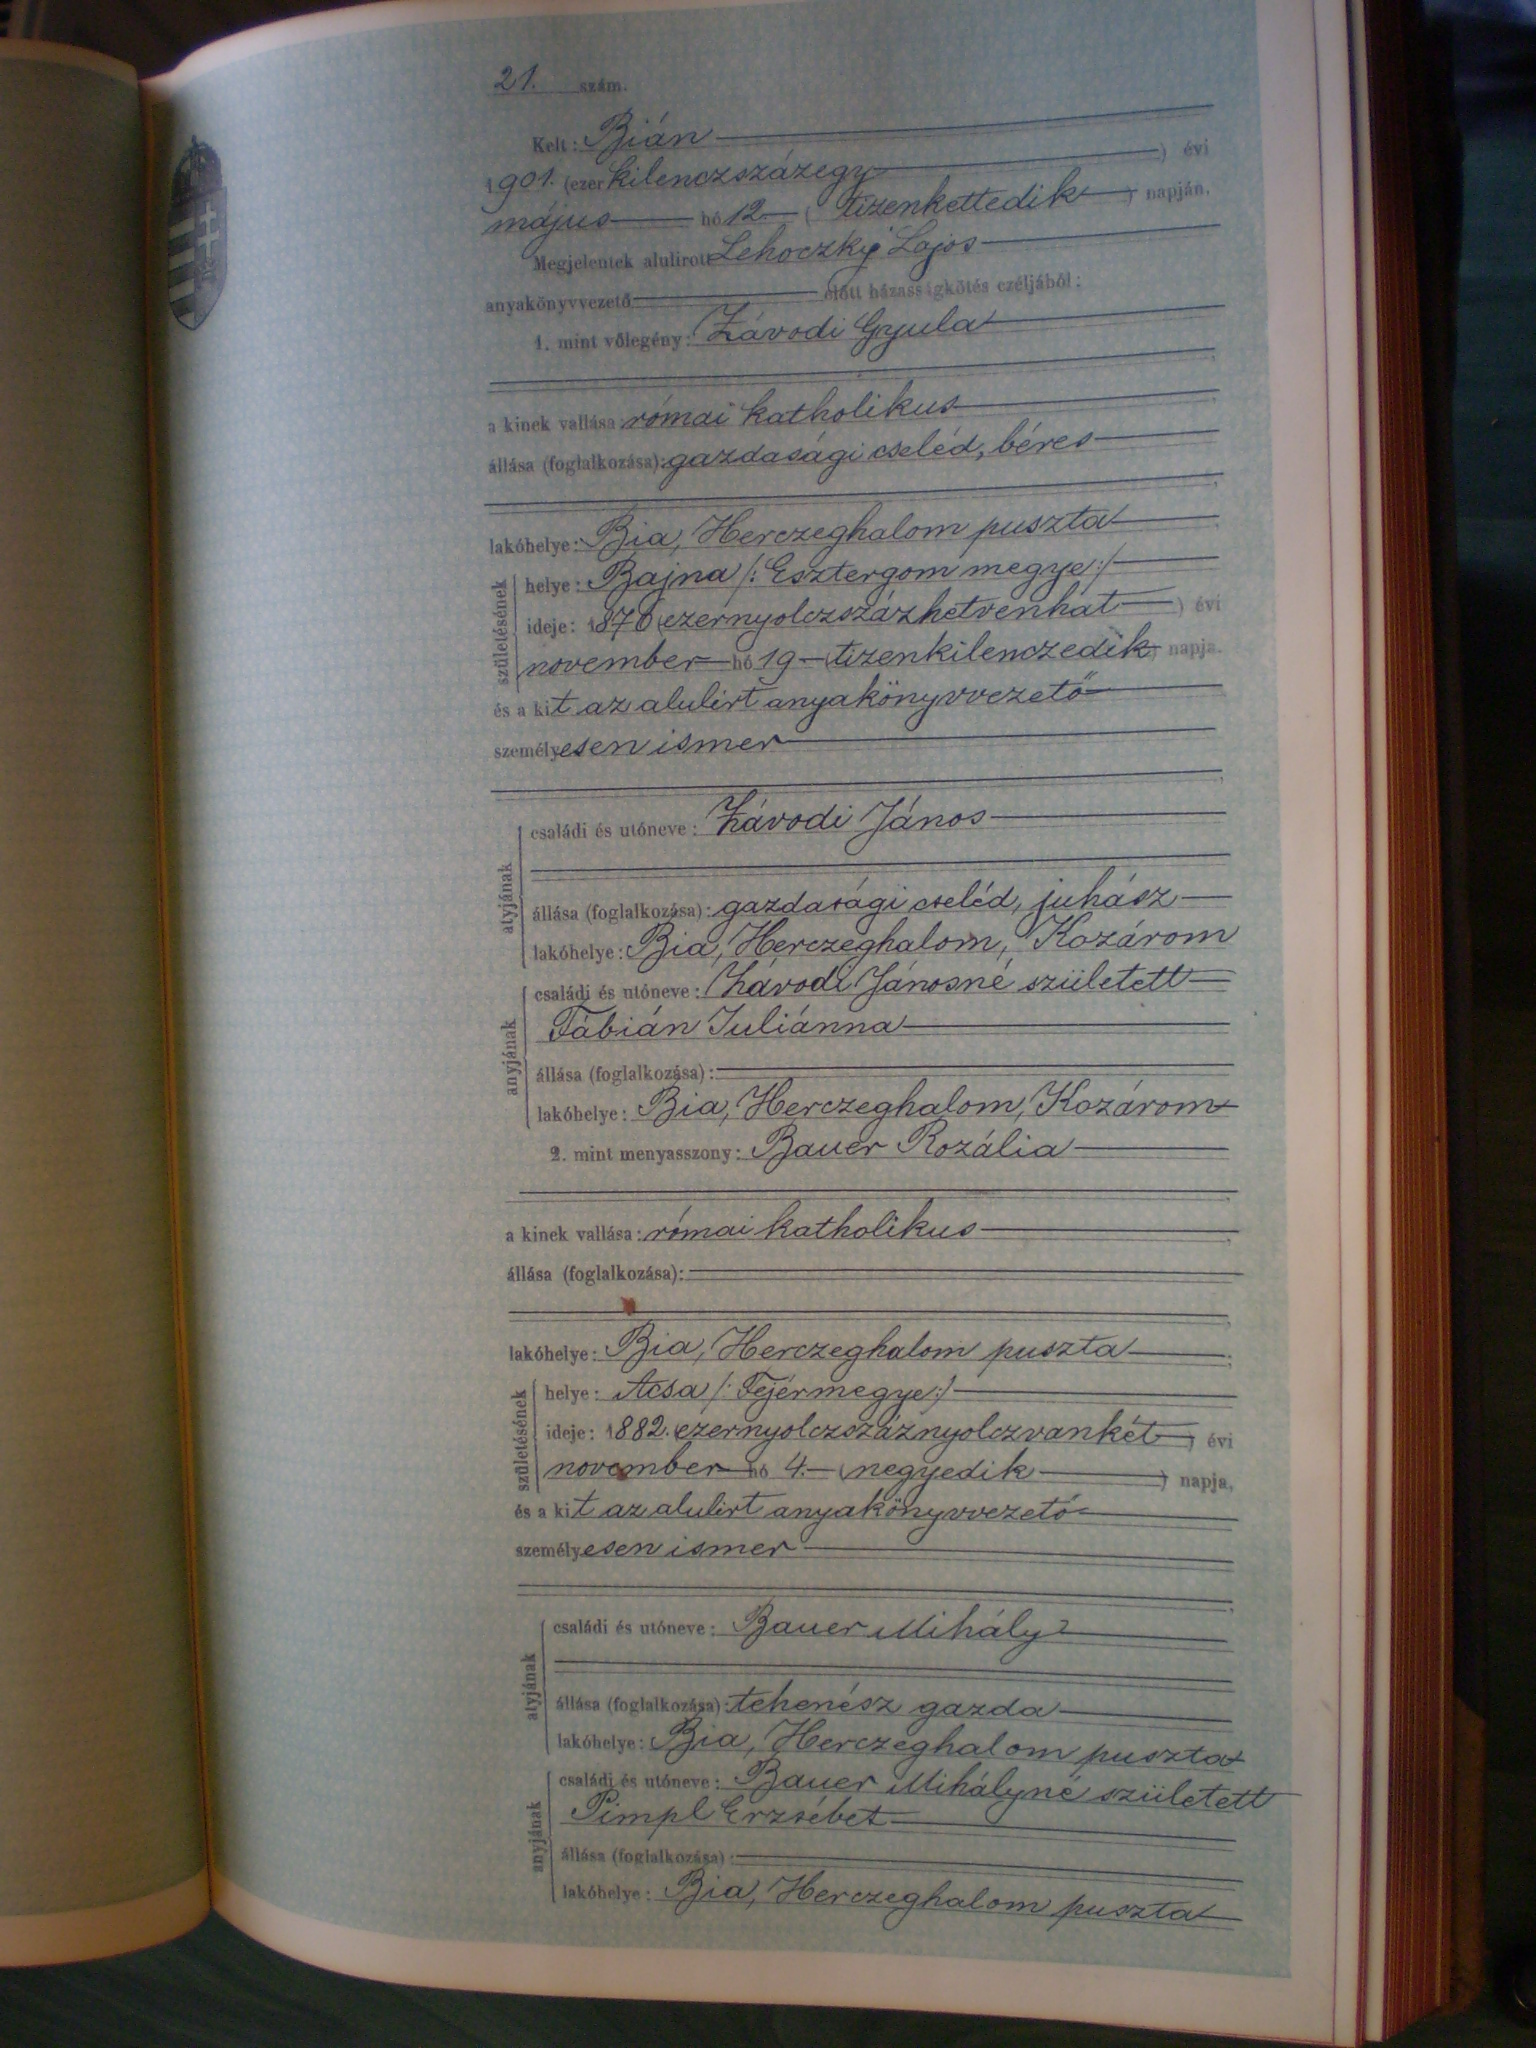 21. szám.
Kelt: Bián
1901. (ezer kilenczszázegy ) évi
május hó 12 ( tizenkettedik ) napján.
Megjelentek alulirott Lehoczky Lajos
anyakönyvvezető előtt házasságkötés czéljából:
1. mint vőlegény: Závodi Gyula
a kinek vallása: római katholikus
állása (foglalkozása): gazdasági cseléd, béres
lakóhelye: Bia, Herczeghalom puszta
születésének
helye: Bajna /: Esztergom megye :/
ideje: 1876 (ezernyolczszázhetvenhat ) évi
november hó 19 (tizenkilenczedik ) napja.
és a kit az alulirt anyakönyvvezető
személyesen ismer
atyjának
családi és utóneve: Závodi János
állása (foglalkozása): gazdasági cseléd, juhász
lakóhelye: Bia, Herczeghalom, Kozárom
anyjának
családi és utóneve: Závodi Jánosné született
Fábián Juliánna
állása (foglalkozása):
lakóhelye: Bia, Herczeghalom, Kozárom
2. mint menyasszony: Bauer Rozália
a kinek vallása: római katholikus
állása (foglalkozása):
lakóhelye: Bia, Herczeghalom puszta
születésének
helye: Acsa /: Fejérmegye :/
ideje: 1882. (ezernyolczszáznyolczvankét ) évi
november hó 4. (negyedik ) napja,
és a kit az alulirt anyakönyvvezető
személyesen ismer
atyjának
családi és utóneve: Bauer Mihály
állása (foglalkozása): tehenész gazda
lakóhelye: Bia, Herczeghalom puszta
anyjának
családi és utóneve: Bauer Mihályné született
Pimpl Erzsébet
állása (foglalkozása):
lakóhelye: Bia, Herczeghalom puszta